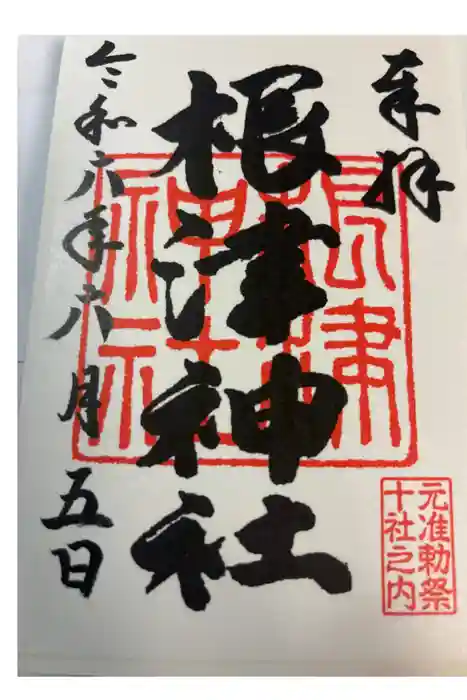 奉拝
根津神社
令和六年六月五日
根津神社
元准勅祭
十社之内